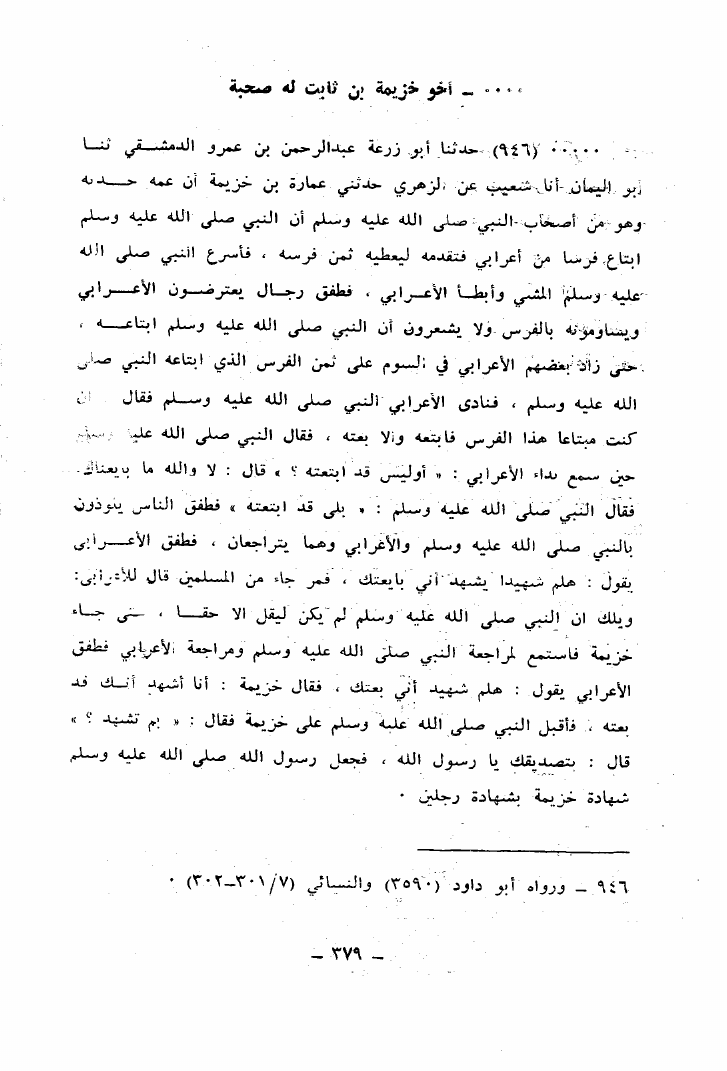 ٠٠٠٠ ـ أخو خزيمة بن ثابت له صحبة
٠٠٠٠٠ (٩٤٦) حدثنا أبو زرعة عبدالرحمن بن عمرو الدمشقي ثنا
أبو اليمان أنا شعيب عن الزهري حدثني عمارة بن خزيمة أن عمه حدثه
وهو من أصحاب النبي صلى الله عليه وسلم أن النبي صلى الله عليه وسلم
ابتاع فرسا من أعرابي فتقدمه ليعطيه ثمن فرسه ، فأسرع النبي صلى الله
عليه وسلم المشي وأبطأ الأعرابي ، فطفق رجال يعترضون الأعرابي
ويساومونه بالفرس ولا يشعرون أن النبي صلى الله عليه وسلم ابتاعه ،
حتى زاد بعضهم الأعرابي في السوم على ثمن الفرس الذي ابتاعه النبي صلى
الله عليه وسلم ، فنادى الأعرابي النبي صلى الله عليه وسلم فقال ان
كنت مبتاعا هذا الفرس فابتعه والا بعته ، فقال النبي صلى الله عليه وسلم
حين سمع نداء الأعرابي : « أوليس قد ابتعته ؟ » قال : لا والله ما بايعناك
فقال النبي صلى الله عليه وسلم : « بلى قد ابتعته » فطفق الناس يلوذون
بالنبي صلى الله عليه وسلم والأعرابي وهما يتراجعان ، فطفق الأعرابي
يقول : هلم شهيدا يشهد أني بايعتك ، فمر جاء من المسلمين قال للأعرابي:
ويلك ان النبي صلى الله عليه وسلم لم يكن ليقل الا حقا ، حتى جاء
خزيمة فاستمع لمراجعة النبي صلى الله عليه وسلم ومراجعة الأعرابي فطفق
الأعرابي يقول : هلم شهيد أني بعتك ، فقال خزيمة : أنا أشهد أنك قد
بعته ، فأقبل النبي صلى الله عليه وسلم على خزيمة فقال : « بم تشهد ؟ »
قال : بتصديقك يا رسول الله ، فجعل رسول الله صلى الله عليه وسلم
شهادة خزيمة بشهادة رجلين ٠
٩٤٦ ـ ورواه أبو داود (٣٥٩٠) والنسائي (٧/٣٠١ـ٣٠٢) ٠
ـ ٣٧٩ ـ